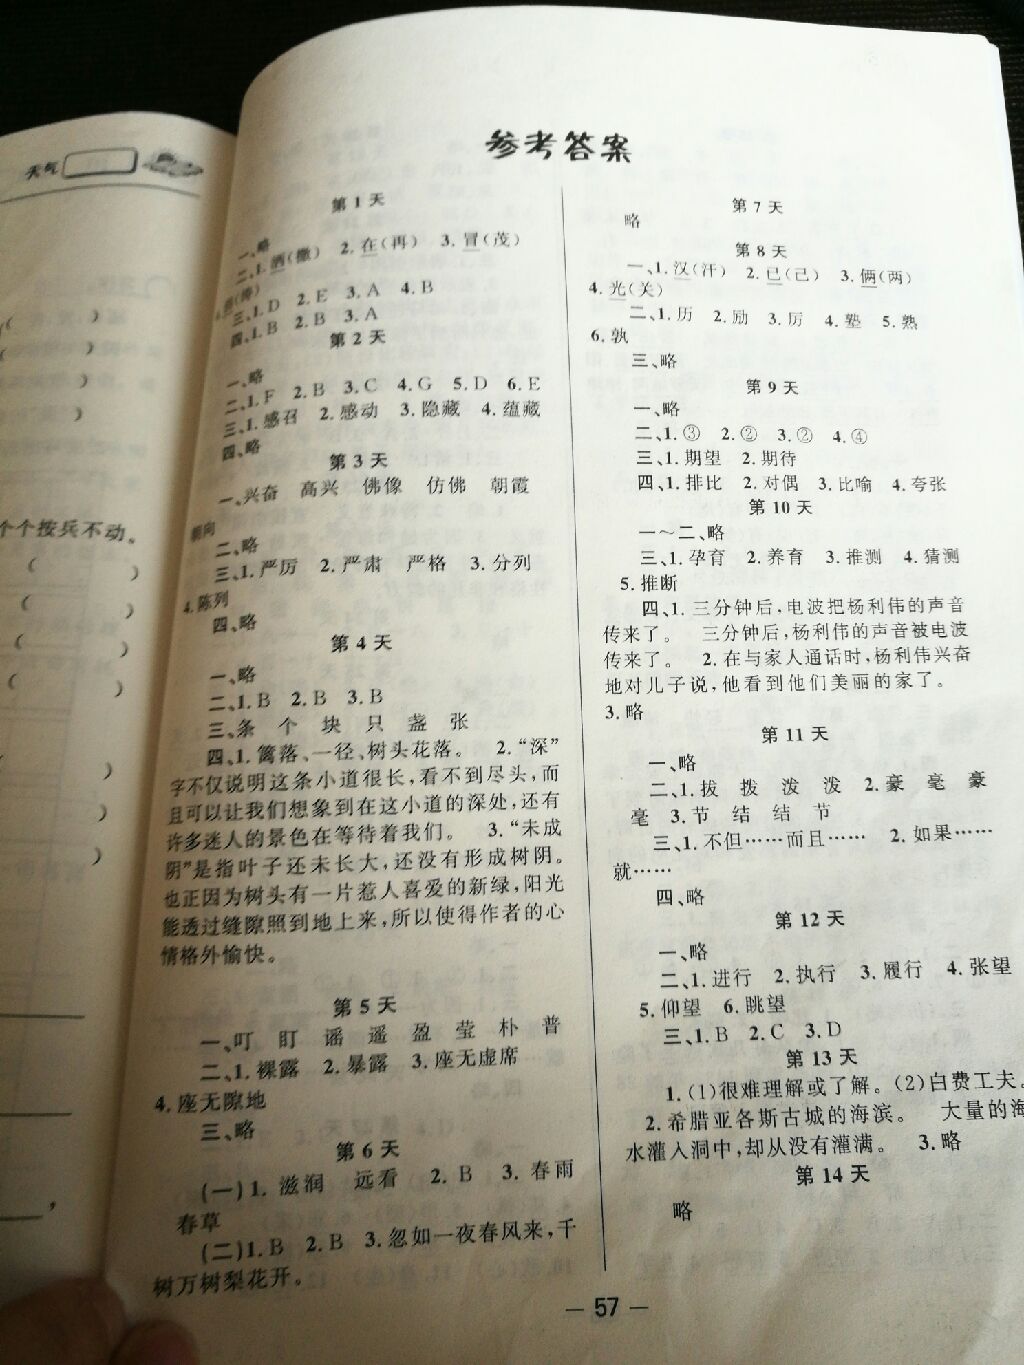 天气
个个按兵不动。
参考答案
第1天
一、略
二、1.洒(撒) 2.在(再) 3.冒(茂)
三、1.D 2.E 3.A 4.B
四、1.B 2.B 3.A
第2天
一、略
二、1.F 2.B 3.C 4.G 5.D 6.E
三、1.感召 2.感动 3.隐藏 4.蕴藏
四、略
第3天
一、兴奋 高兴 佛像 仿佛 朝霞
朝向
二、略
三、1.严厉 2.严肃 严格 3.分列
4.陈列
四、略
第4天
一、略
二、1.B 2.B 3.B
三、条 个 块 只 盏 张
四、1.篱落、一径、树头花落。 2.“深”
字不仅说明这条小道很长,看不到尽头,而
且可以让我们想象到在这小道的深处,还有
许多迷人的景色在等待着我们。 3.“未成
阴”是指叶子还未长大,还没有形成树阴。
也正因为树头有一片惹人喜爱的新绿,阳光
能透过缝隙照到地上来,所以使得作者的心
情格外愉快。
第5天
一、叮 盯 谣 遥 盈 莹 朴 普
二、1.裸露 2.暴露 3.座无虚席
4.座无隙地
三、略
第6天
(一)1.滋润 远看 2.B 3.春雨
春草
(二)1.B 2.B 3.忽如一夜春风来,千
树万树梨花开。
第7天
略
第8天
一、1.汉(汗) 2.已(己) 3.俩(两)
4.光(关)
二、1.历 2.励 3.厉 4.塾 5.熟
6.孰
三、略
第9天
一、略
二、1.③ 2.② 3.② 4.④
三、1.期望 2.期待
四、1.排比 2.对偶 3.比喻 4.夸张
第10天
一～二、略
三、1.孕育 2.养育 3.推测 4.猜测
5.推断
四、1.三分钟后,电波把杨利伟的声音
传来了。 三分钟后,杨利伟的声音被电波
传来了。 2.在与家人通话时,杨利伟兴奋
地对儿子说,他看到他们美丽的家了。
3.略
第11天
一、略
二、1.拔 拨 泼 泼 2.豪 毫 豪
毫 3.节 结 结 节
三、1.不但……而且…… 2.如果……
就……
四、略
第12天
一、略
二、1.进行 2.执行 3.履行 4.张望
5.仰望 6.眺望
三、1.B 2.C 3.D
第13天
1.(1)很难理解或了解。(2)白费工夫。
2.希腊亚各斯古城的海滨。 大量的海
水灌入洞中,却从没有灌满。 3.略
第14天
略
— 57 —